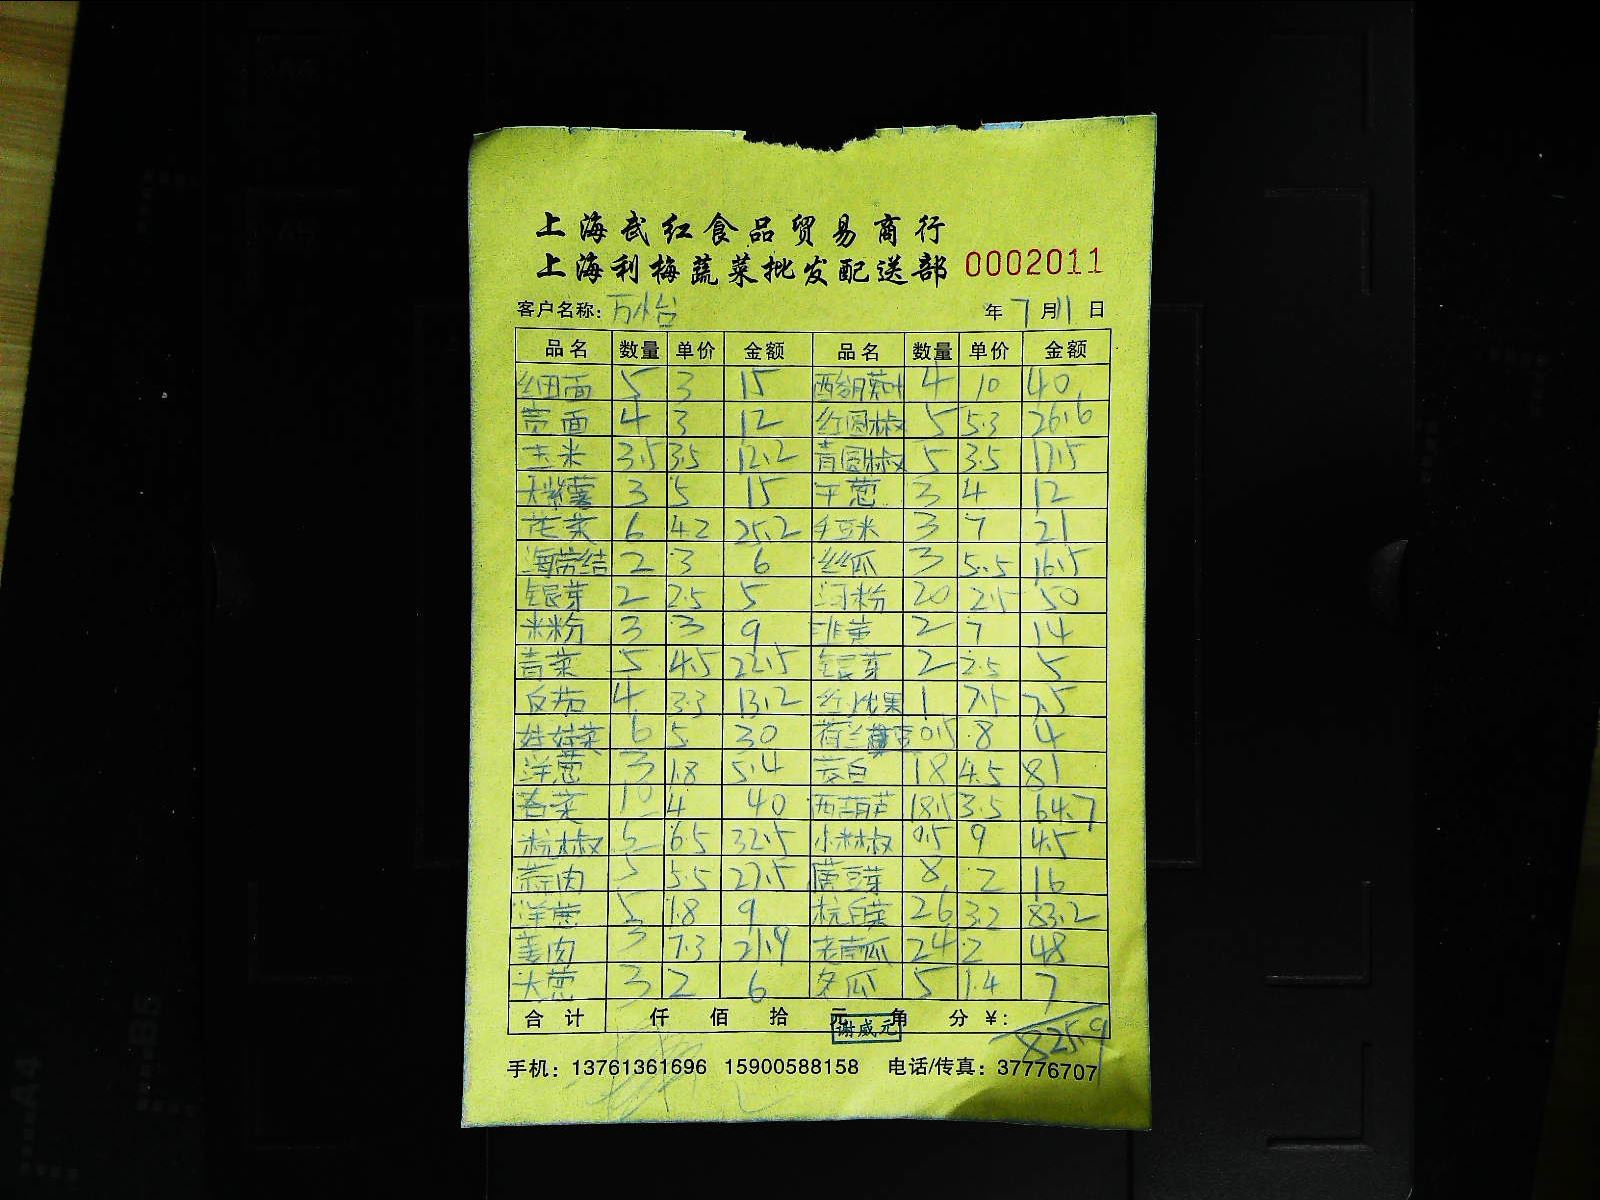 上海武红食品贸易商行
上海利梅蔬菜批发配送部 0002011
客户名称:万怡 年7月11日
品名 数量 单价 金额 品名 数量 单价 金额
细面 5 3 15 4 10 40
宽面 4 3 12 红圆椒 5 5.3 26.6
玉米 3.5 3.5 12.2 青圆椒 5 3.5 17.5
紫薯 3 5 15 干葱 3 4 12
花菜 6 4.2 25.2 毛豆米 3 7 21
海带结 2 3 6 丝瓜 3 5.5 16.5
银芽 2 2.5 5 河粉 20 2.5 50
米粉 3 3 9 韭黄 2 7 14
青菜 5 4.5 22.5 银芽 2 2.5 5
反茄 4 3.3 13.2 红 果 1 7.5 7.5
娃娃菜 6 5 30 荷兰 0.5 8 4
洋葱 3 1.8 5.4 茭白 18 4.5 81
香菜 10 4 40 西葫芦 18.5 3.5 64.7
杭椒 5 6.5 32.5 小米椒 0.5 9 4.5
蒜肉 5 5.5 27.5 黄豆芽 8 2 16
洋葱 5 1.8 9 杭白菜 26 3.2 83.2
姜肉 3 7.3 21.9 老南瓜 24 2 48
大葱 3 2 6 冬瓜 5 1.4 7
合计 仟 佰 拾 元 角 分 ¥: 825.9
谢威元
手机: 13761361696 15900588158 电话/传真: 37776707